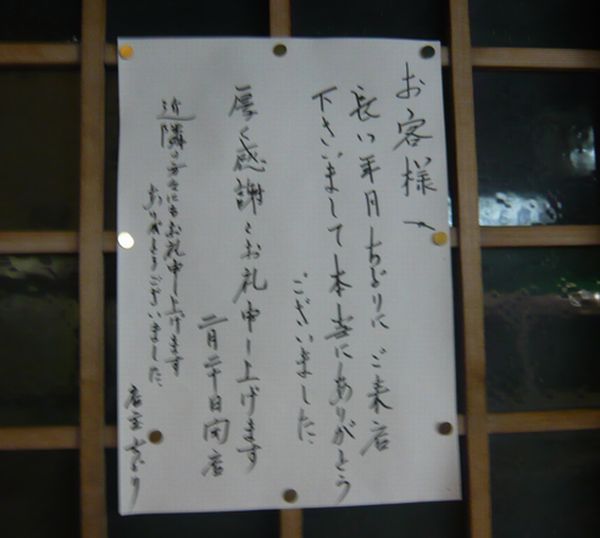 お客様へ
長い年月ちどりにご来店
下さいまして本当にありがとう
ございました.
厚く感謝とお礼申し上げます
二月二十日閉店
近隣の方々にもお礼申し上げます
ありがとうございました.
店主 ちどり